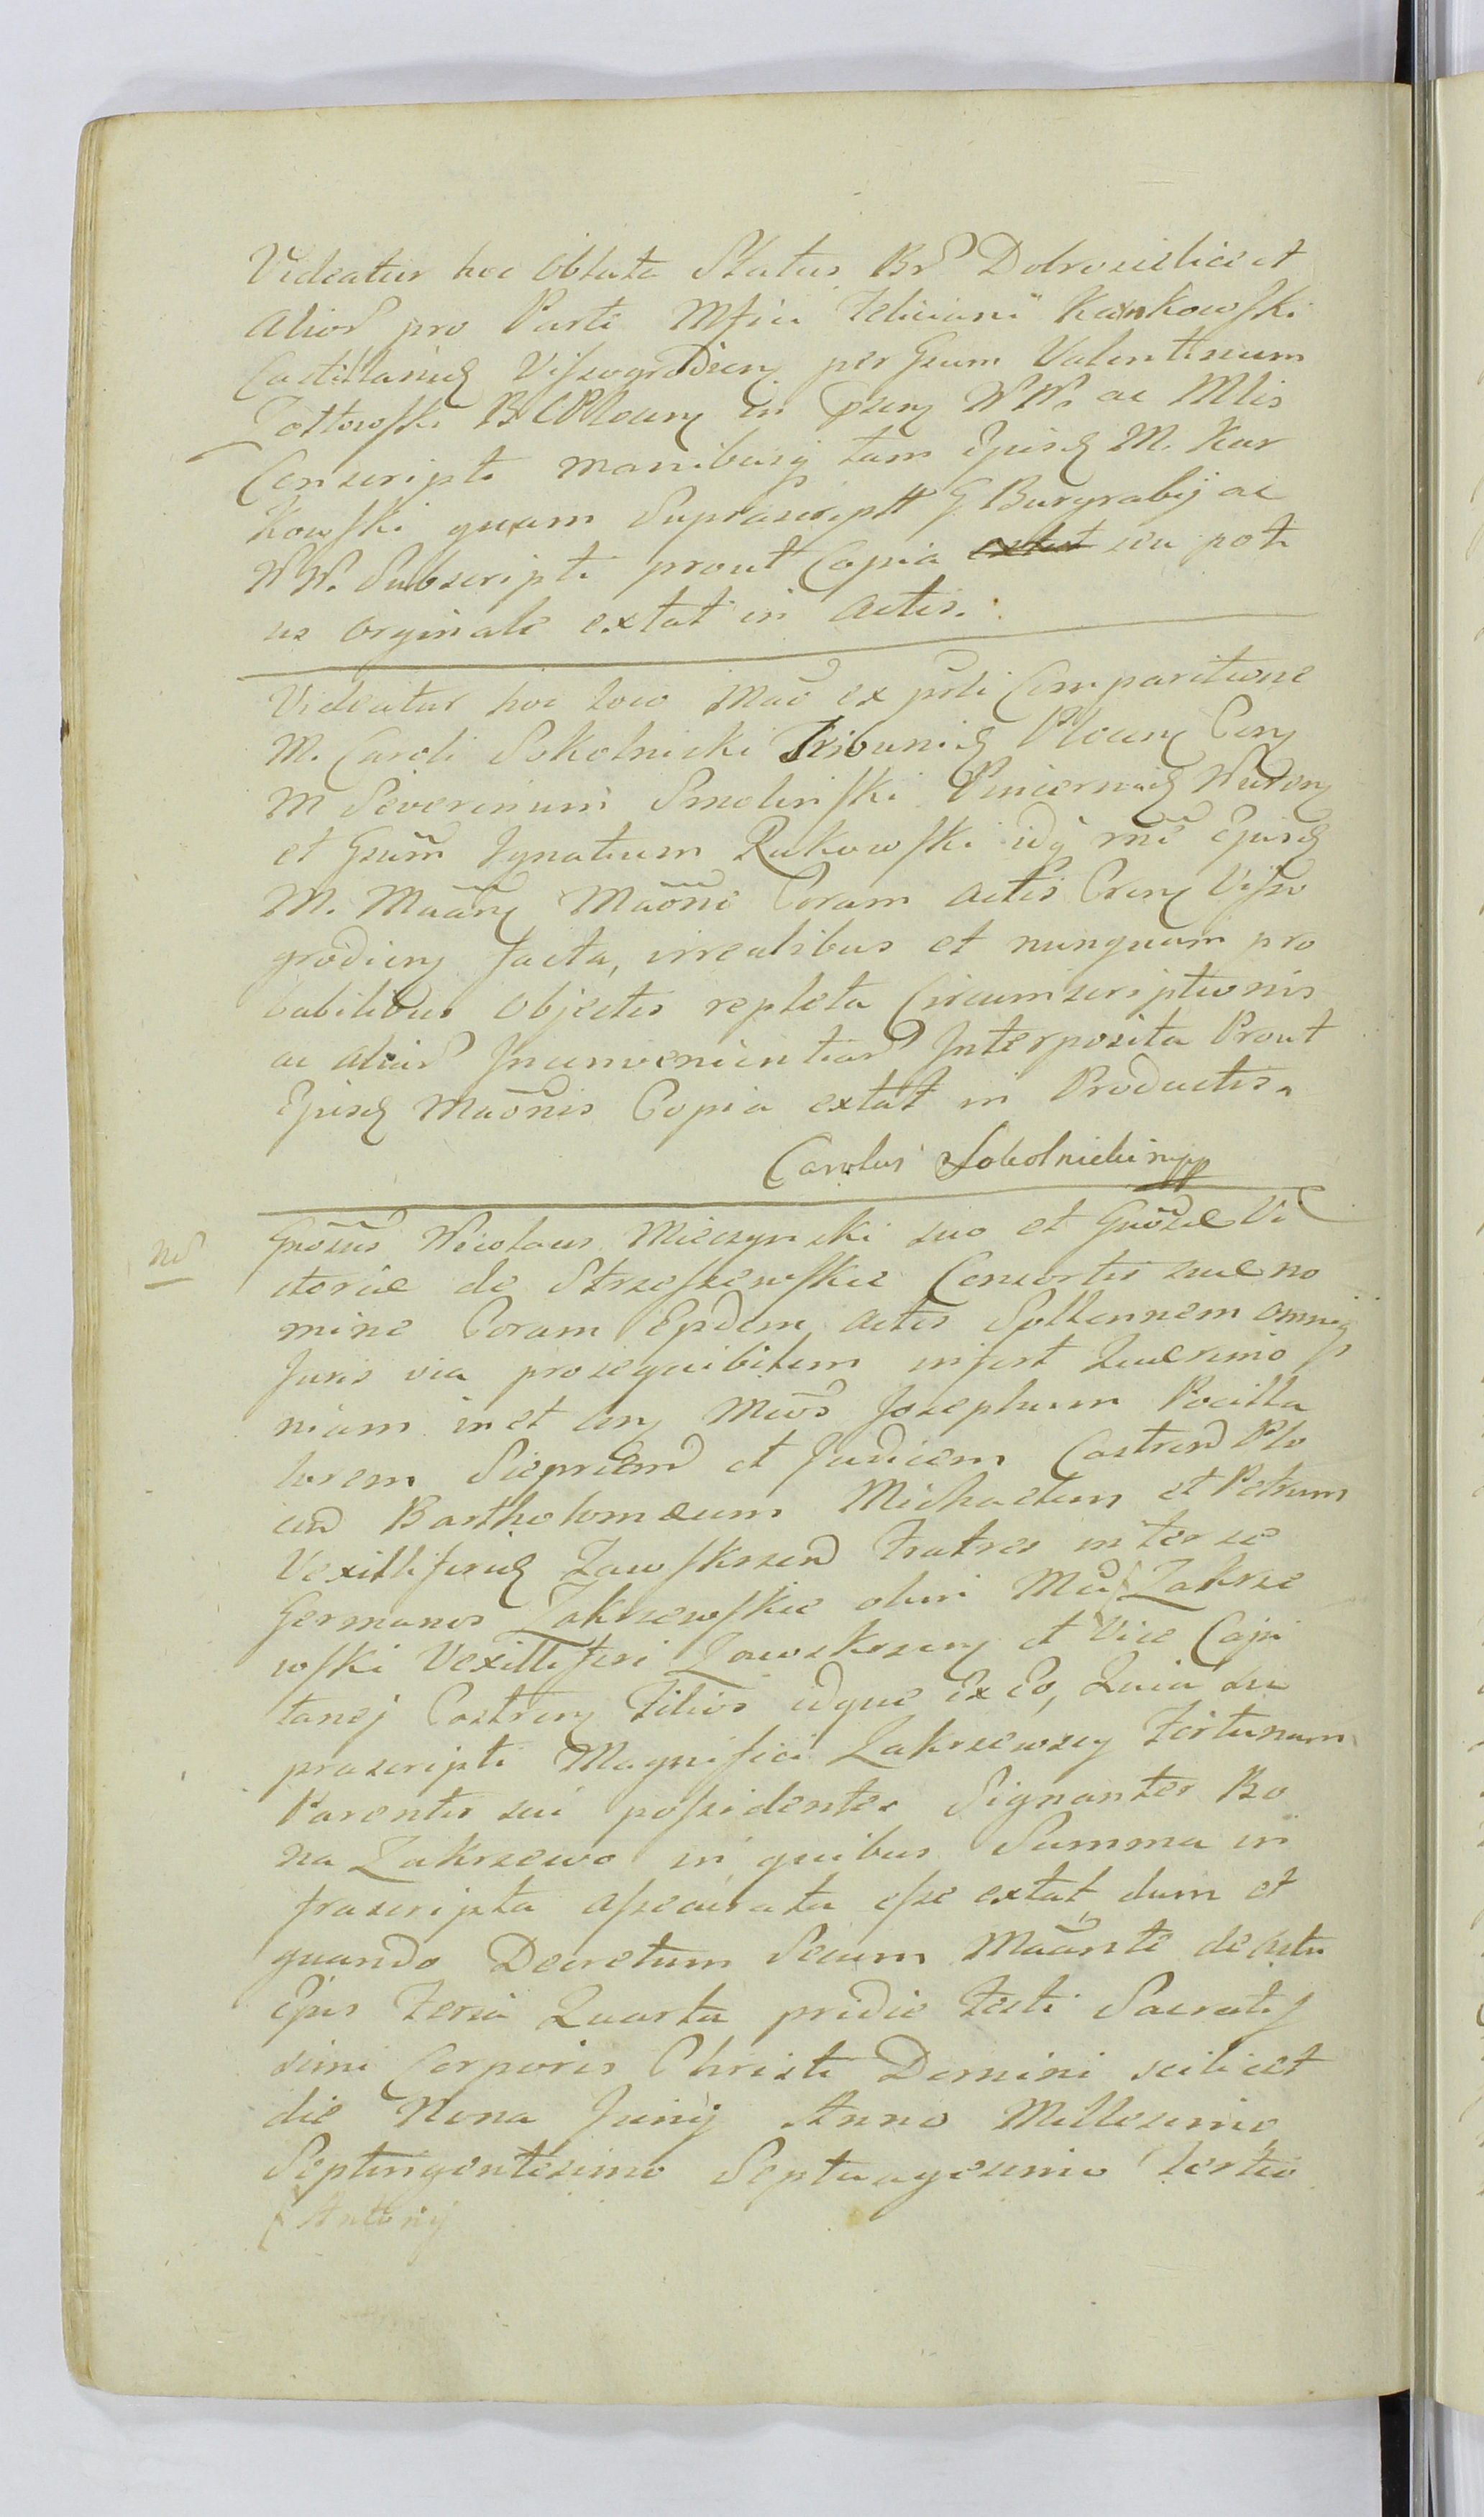 Videatur hoc Oblata Status Br Dobrosielice et
Alior pro Parte Mfici Feliciani Karnkowski
Castellanid Vissogrodien per Gsum Valentinum
Zottowski B C Plocen in Psen WW. ac Mlis
Conscripti manibusq tam Ejusd M. Kar
kowski quam Suprascriptt G Burgrabij ac
WW. Subscripti prout Copia extat seu poti
us orginale extat in Actis.
Videatur hoc loco Mao ex prti Comparitione
M. Caroli Sokolnicki Tribunid Plocen Con
M Severinum Smolinski Pincernid Wendeng
et Gsum Ignatium Rukowski idq rne Ejusd
M. Maan Maone Coram Actis Cren Visso
grodien facta, irrealibus et nunquam pro
babilibus Objectis repleta Circumscriptionis
ac aliar Inconvenientiar Interposita Prout
Ejusd Maonis Copia extat in Productis.
Carolus Sokolnicki mpp
Nd
Gnosus Nicolaus Mieczynski suo et Gnosae Vi
ctoriae de Strzeszewskie Consortis suae no
mine Coram Epdem Actis Sollennem omniq
Juris via prosequibilem infert Quaerimo
niam in et con Mcos Josephum Pocilla
torem Sieprcen et Judicem Castren Plo
cen Bartholomaeum Michaelem et Petrum
Vexilliferid Zawskrzen Fratres inter se
Germanos Zakrzewskie olim Mci Zakrze
wski Vexilliferi Zawskrzen et Vice Capi
tanej Castren Filios idque Ex Eo, Quia su
prascripti Magnifici Zakrzewscy Fortunam
Parentis sui possidentes Signanter Bo
na Zakrzewo in quibus Summa in
frascripta assecurata esse extat, dum et
quando Decretum Secum Maante de Actu
Ejus Feria Quarta pridie Festi Sacratis
simi Corporis Christi Domini scilicet
die Nona Junij Anno Millesimo
Septingentesimo Septuagesimo Tertio
Antonij